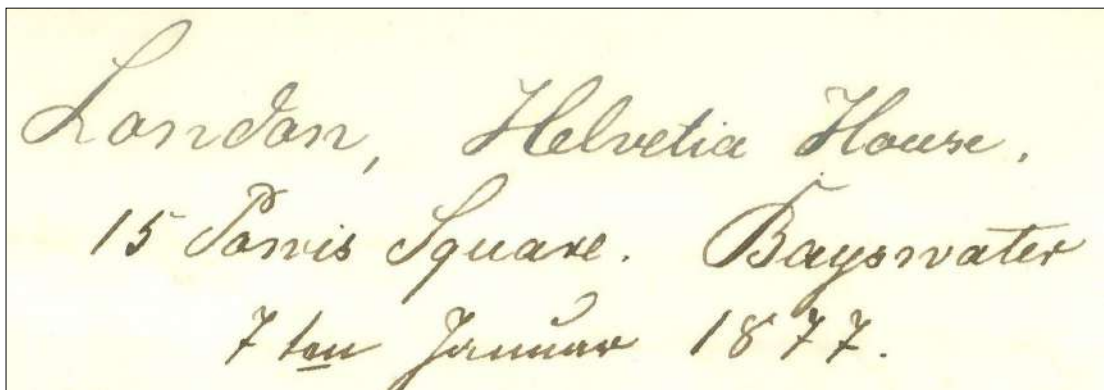 London, Helvetia House.
15 Powis Square. Bayswater
7ten Januar 1877.